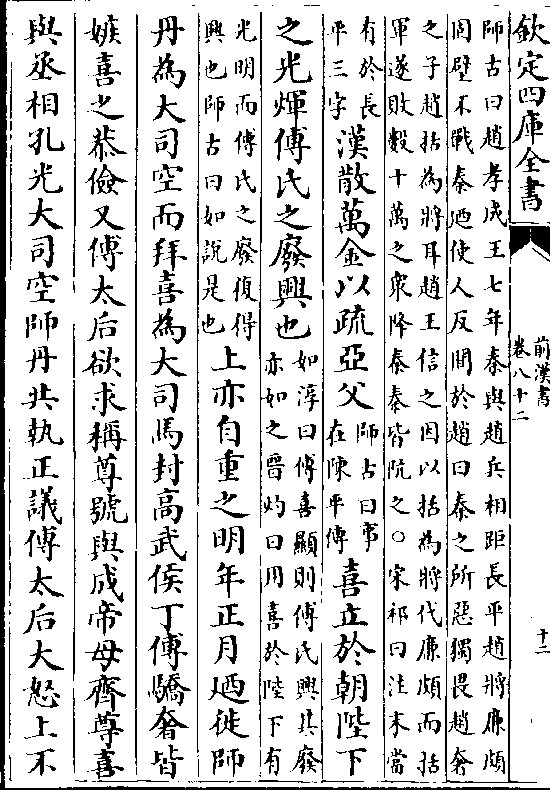 欽定四庫全書
前漢書
卷八十二
十二
師古曰趙孝成王七年秦與趙兵相距長平趙將廉頗
固壁不戰秦廼使人反間於趙曰秦之所惡獨畏趙奢
之子趙括為將耳趙王信之因以括為將代廉頗而括
軍遂敗數十萬之衆降秦秦皆阬之○宋祁曰注末當
有於長
平三字
漢散萬金以疏亞父
師古曰事
在陳平傳
喜立於朝陛下
之光煇傅氏之廢興也
如淳曰傅喜顯則傅氏興其廢
亦如之晉灼曰用喜於陛下有
光明而傅氏之廢復得
興也師古曰如說是也
上亦自重之明年正月廼徙師
丹為大司空而拜喜為大司馬封高武侯丁傅驕奢皆
嫉喜之恭儉又傅太后欲求稱尊號與成帝母齊尊喜
與丞相孔光大司空師丹共執正議傅太后大怒上不